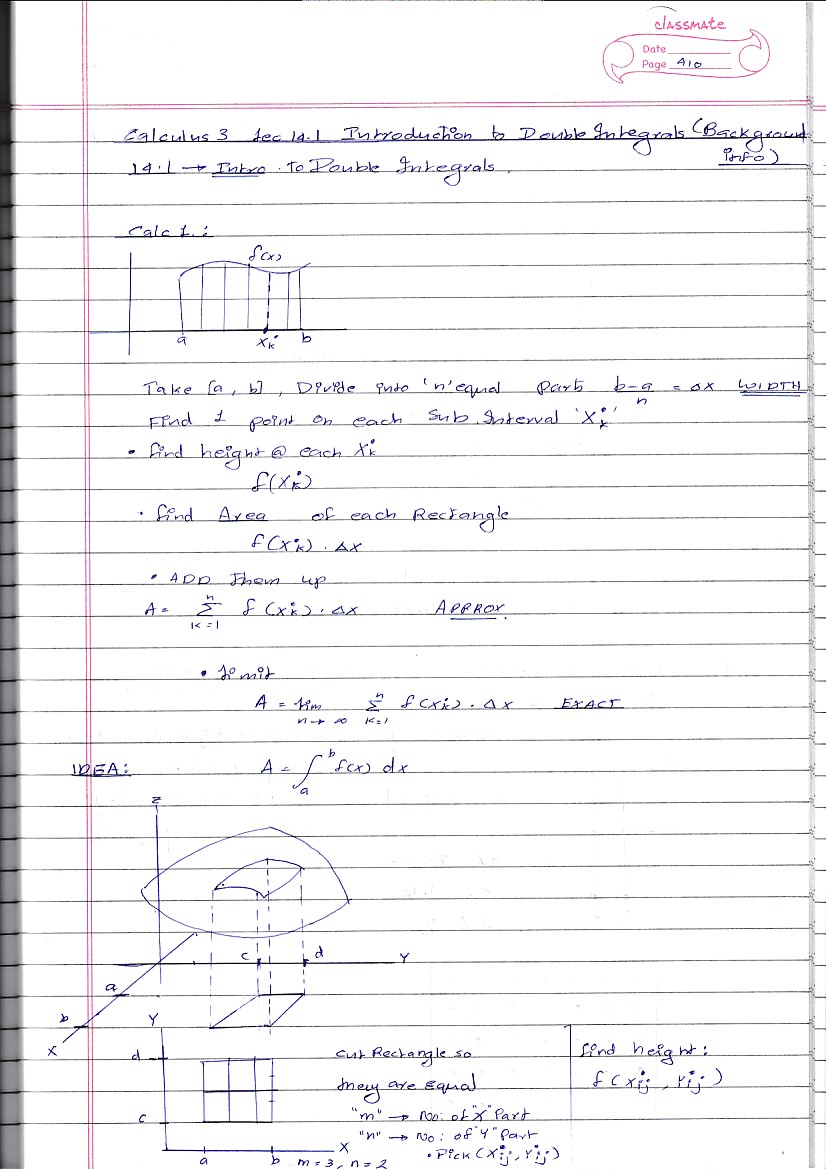 classmate
Date
Page A10
Calculus 3 Sec 14.1 Introduction to Double Integrals (Background info)
14.1 → Intro. To Double Integrals.
Calc 1.:
f(x)
a xₖ* b
Take [a, b], Divide into 'n' equal Parts b-a/n = Δx WIDTH
Find 1 point on each Sub.Interval 'xₖ*'
• find height @ each xₖ*
f(xₖ*)
• find Area of each Rectangle
f(xₖ*) . Δx
• ADD Them up
A = n Σ k=1 f(xₖ*) . Δx APPROX.
• Limit
A = lim n→∞ n Σ k=1 f(xₖ*) . Δx EXACT
IDEA: A = ∫ₐᵇ f(x) dx
z
c d Y
a
b
X
Y
d cut Rectangle so find height:
they are Equal f(xᵢⱼ*, Yᵢⱼ*)
"m" → No: of "X" Part
c "n" → No: of "Y" Part
X • Pick (Xᵢⱼ*, Yᵢⱼ*)
a b m = 3, n = 2